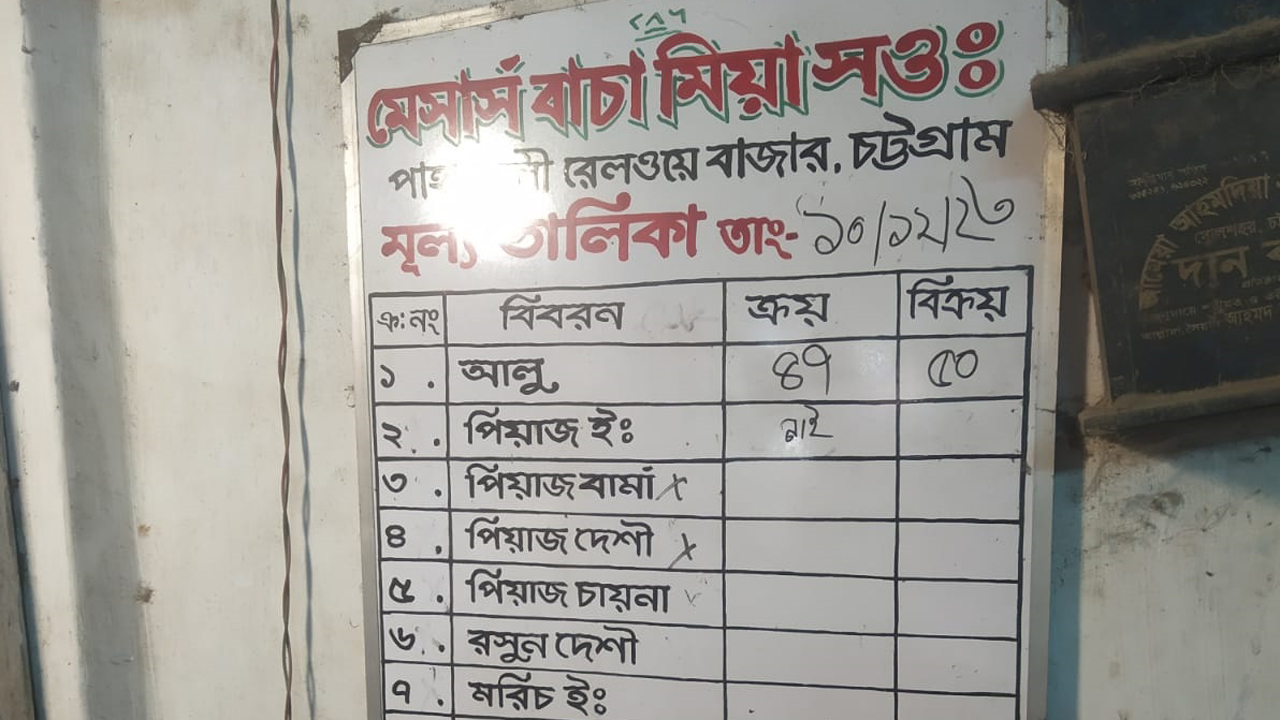 মেসার্স বাচা মিয়া সওঃ
রেলওয়ে বাজার, চট্টগ্রাম
মূল্য তালিকা তাং- ১০/১২/২৩
ক্র:নং বিবরন ক্রয় বিক্রয়
১ . আলু ৪৭ ৫০
২ . পিয়াজ ইঃ নাই
৩ . পিয়াজ বার্মা x
৪ . পিয়াজ দেশী x
৫ . পিয়াজ চায়না
৬ . রসুন দেশী
৭ . মরিচ ইঃ
আহমদিয়া
দান
আহমদ